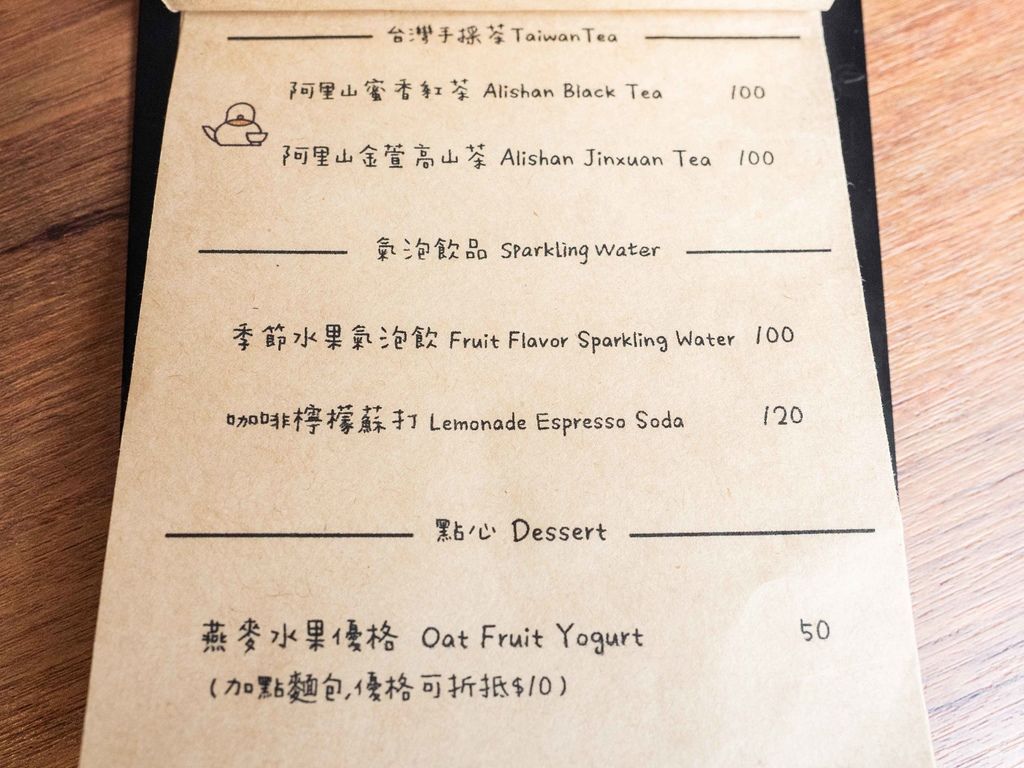 台灣手採茶 Taiwan Tea
阿里山蜜香紅茶 Alishan Black Tea 100
阿里山金萱高山茶 Alishan Jinxuan Tea 100
氣泡飲品 Sparkling Water
季節水果氣泡飲 Fruit Flavor Sparkling Water 100
咖啡檸檬蘇打 Lemonade Espresso Soda 120
點心 Dessert
燕麥水果優格 Oat Fruit Yogurt 50
(加點麵包,優格可折抵$10)